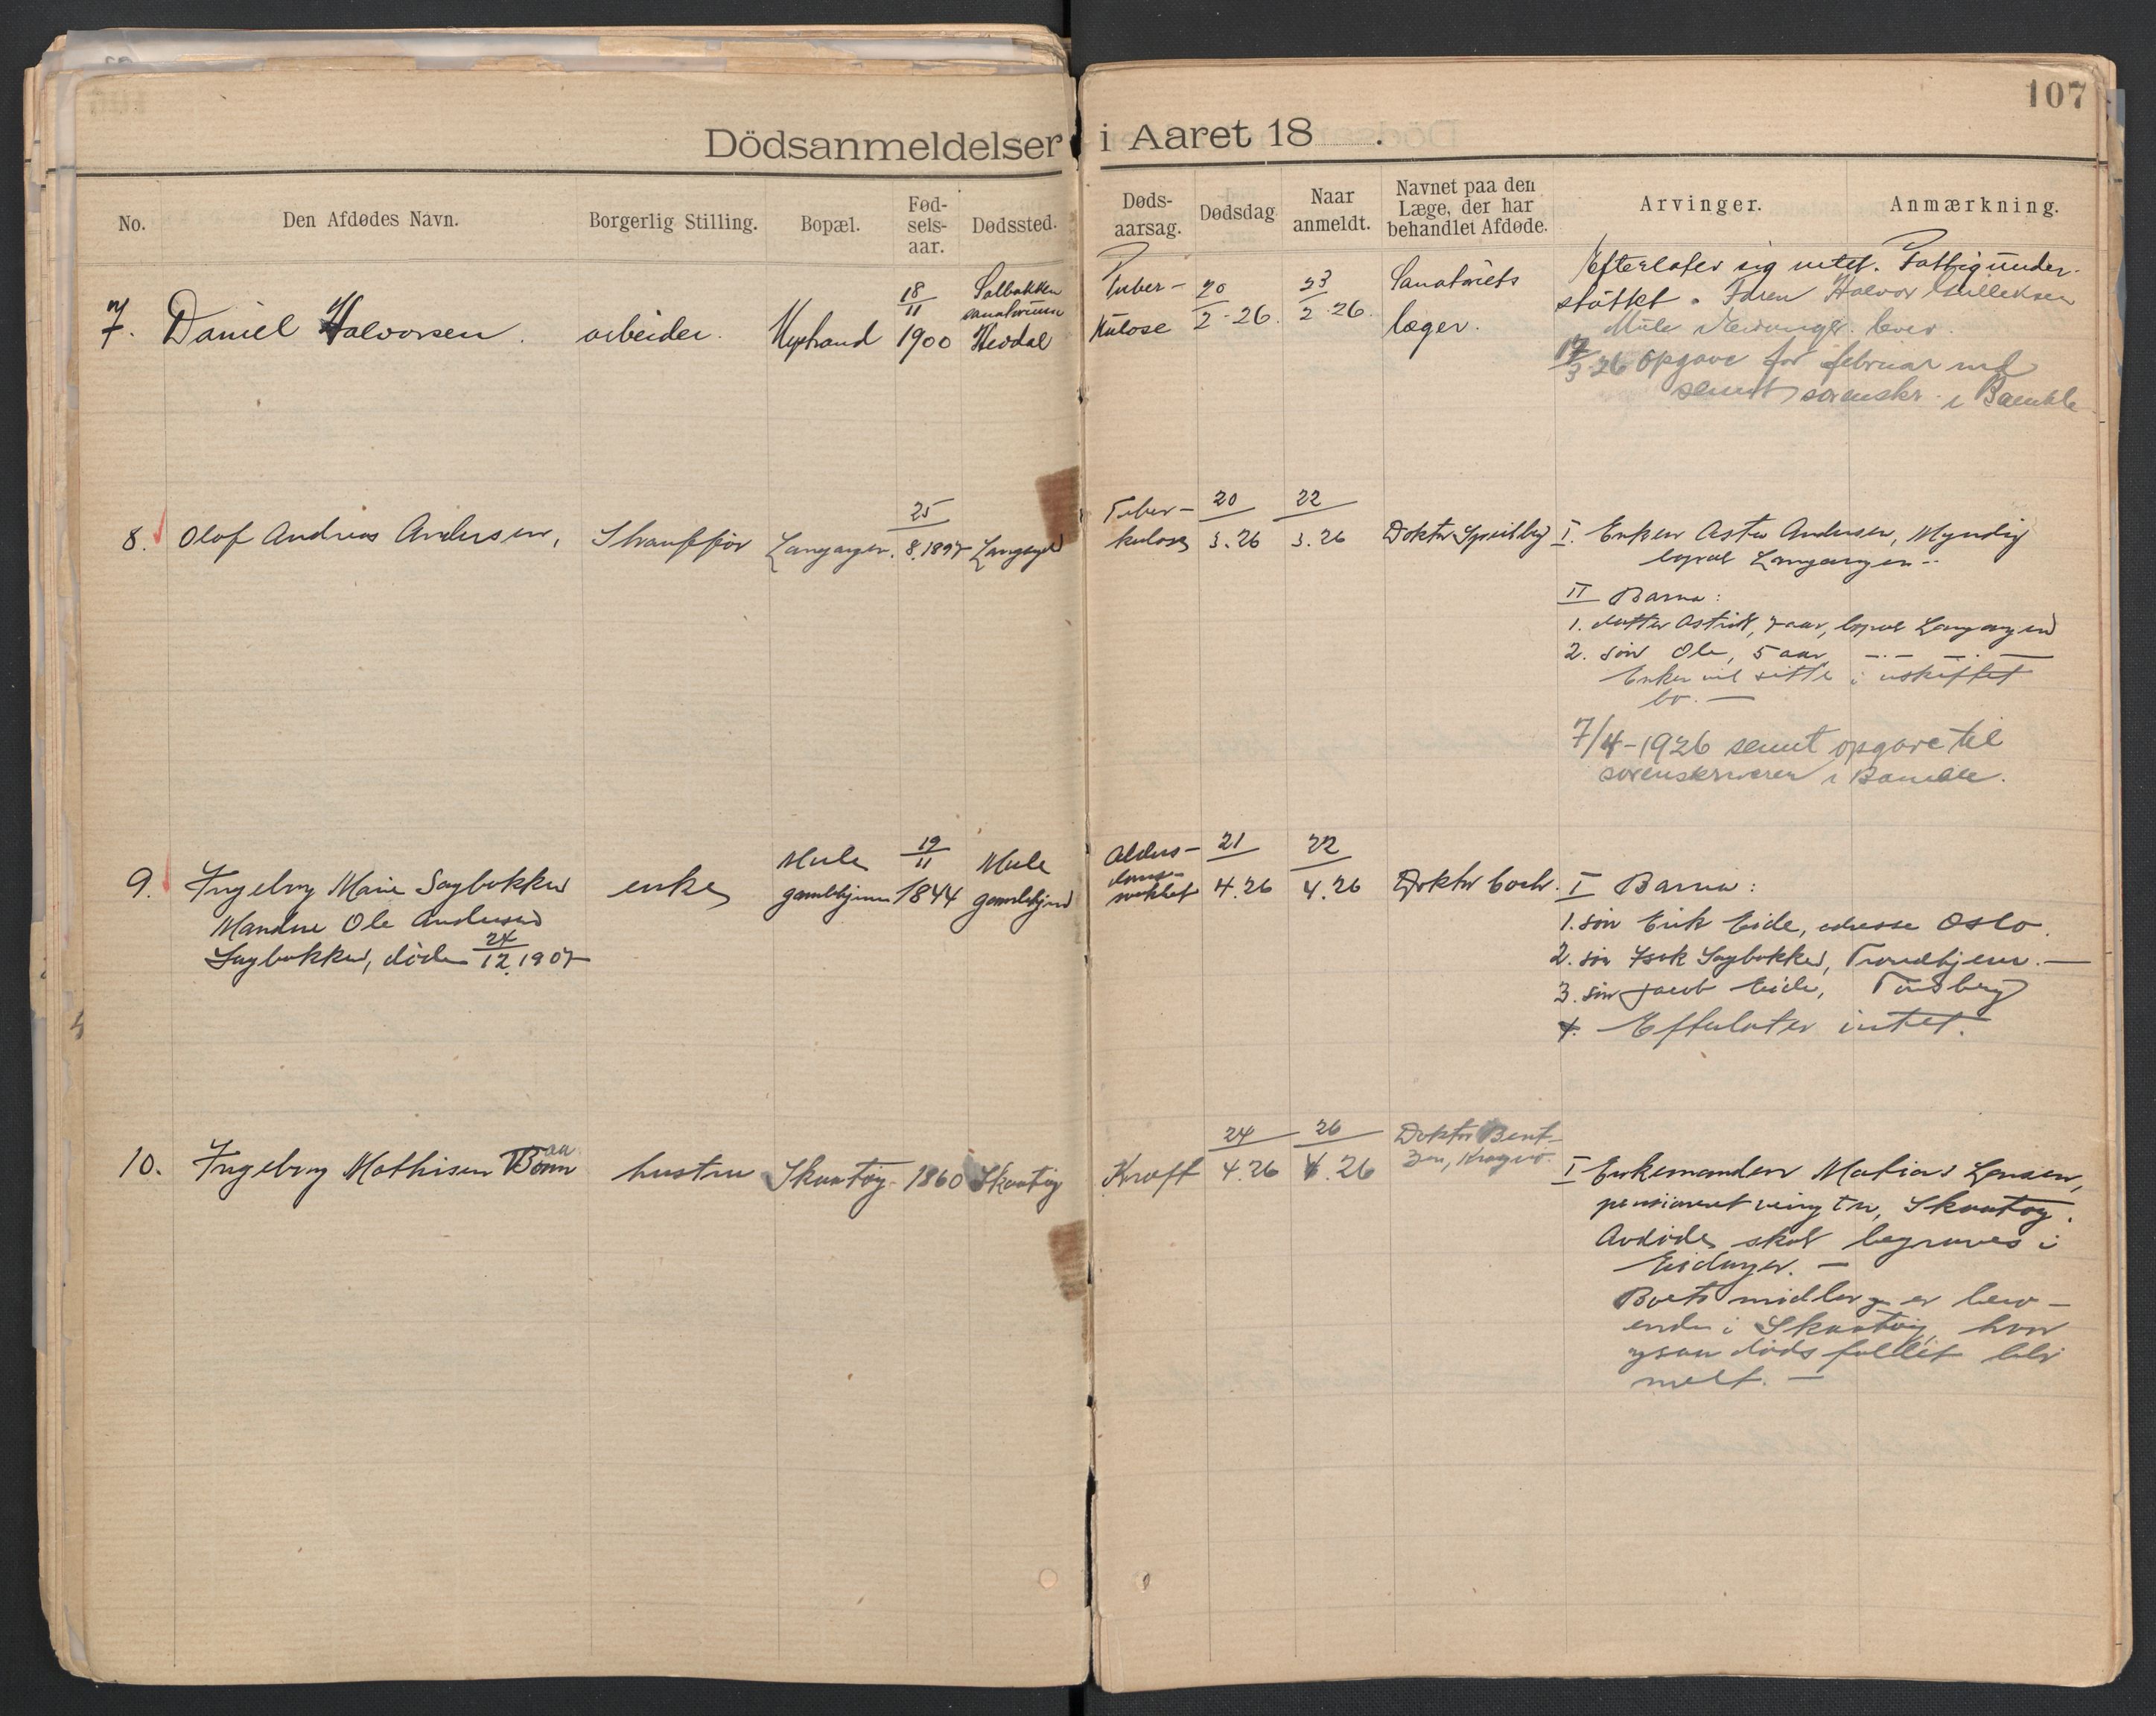 107
Dödsanmeldelser i Aaret 18 .
No.
Den Afdødes Navn.
Borgerlig Stilling.
Bopæl.
Fød-
sels-
aar.
Dødssted.
Døds-
aarsag.
Dødsdag
Naar
anmeldt.
Navnet paa den
Læge, der har
behandlet Afdøde.
Arvinger.
Anmærkning.
7. Daniel Halvorsen. arbeider.
18/11 1900
Solbakken
sanatorium
Tuber-
kulose
20/2-26.
23/2-26.
Sanatoriets
læger.
Efterlater sig intet. Fattigunder-
støttet. Faren Halvor
Mule Eidanger. lever.
17/3-26 opgave for februar md
sendt sorenskr. i Bamble
8. Olaf Andreas Andersen,
Langangen.
25/8.1897
Langangen
Tuber-
kulose
20/3.26
22/3.26
Doktor
I. Enken Andersen, Myndig
bopæl Langangen.-
II Barna:
1. datter Astrid, 7 aar, bopæl Langangen
2. søn Ole, 5 aar —.— —.—
Enken vil sitte i uskiftet
bo. —
7/4-1926 sendt opgave til
sorenskriveren i Bamble.
9. Ingeborg Marie Sagbakken
Manden Ole Andersen
Sagbakken, døde 24/12.1907
enke
Mule
gamlehjem
19/11 1844
Mule
gamlehjem
Alders-
doms-
svakhet
21/4.26
22/4.26
Doktor Coch.
I Barna:
1. søn Erik Eide, adresse Oslo.
2. søn Isak Sagbakken, Trondhjem. —
3. søn Jacob Eide, Tønsberg
4. Efterlater intet.
10. Ingeborg Mathisen
hustru
Skaatøy
1860
Skaatøy
Kræft
24/4.26
26/4.26
Doktor Bent-
zen, Kragerø.
I Enkemanden Matias Larsen,
pensioneret, Skaatøy.
Avdøde skal begraves i
Eidanger. —
Boets midler er bero-
ende i Skaatøy, hvor
ogsaa dødsfallet blir
melt. —